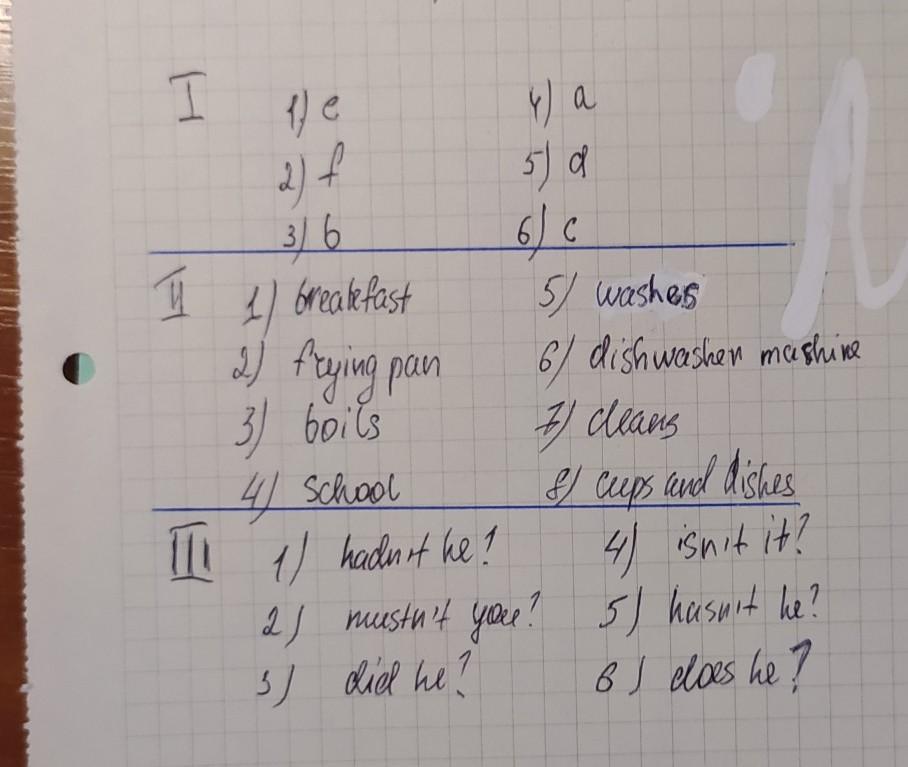 I 1) e 4) a
2) f 5) d
3) b 6) c
II 1) breakfast 5) washes
2) frying pan 6) dishwasher mashine
3) boils 7) cleans
4) school 8) cups and dishes
III 1) hadn't he? 4) isn't it?
2) mustn't you? 5) hasn't he?
3) did he? 6) does he?